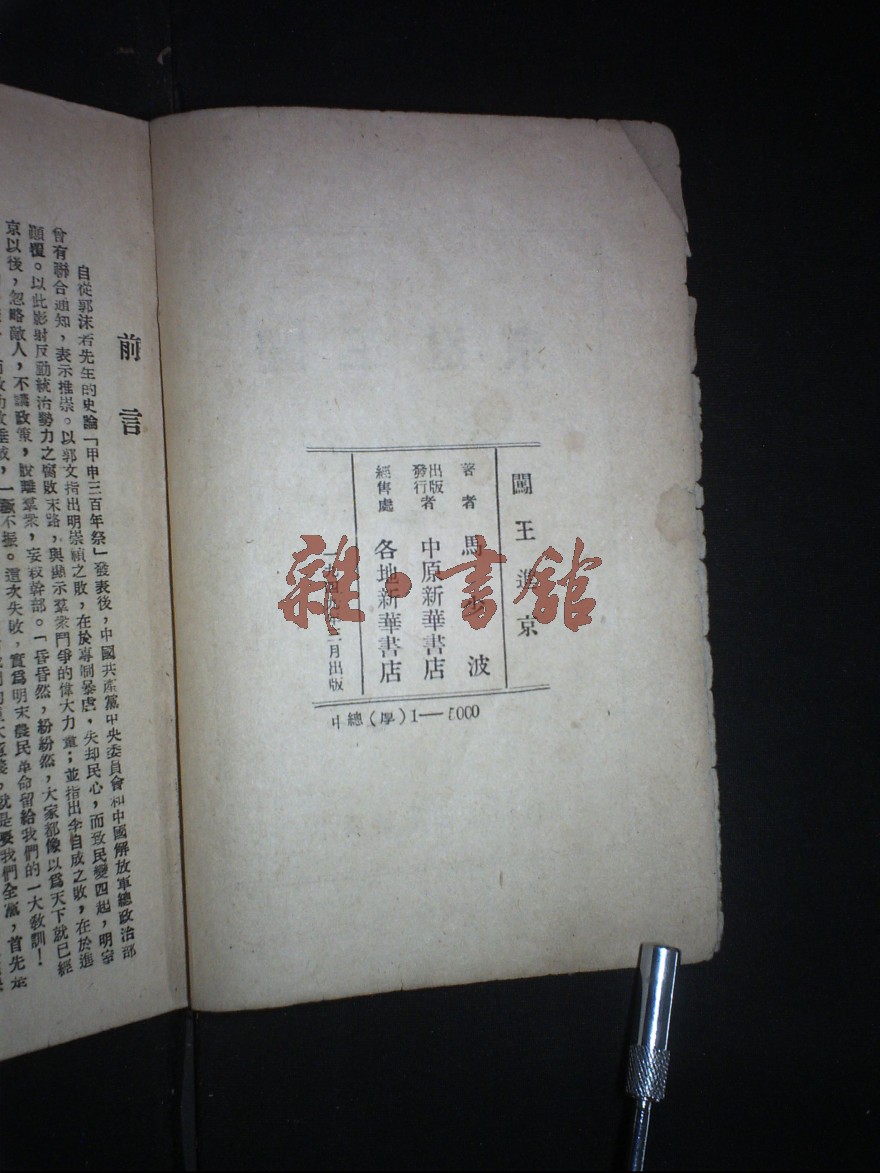 闖王進京
著者 馬 波
出版發行者 中原新華書店
經售處 各地新華書店
月出版
中總(學)1—5000
雜·書館
前言
自從郭沫若先生的史論「甲申三百年祭」發表後,中國共產黨中央委員會和中國解放軍總政治部
曾有聯合通知,表示推崇。以郭文指出明崇禎之敗,在於專制暴虐,失却民心,而致民變四起,明室
顚覆。以此影射反動統治勢力之腐敗末路,與顯示羣衆鬥爭的偉大力量;並指出李自成之敗,在於進
京以後,忽略敵人,不講政策,脫離羣衆,妄殺幹部。「昏昏然,紛紛然,大家都像以爲天下就已經
一蹶不振。這次失敗,實爲明末農民革命留給我們的一大敎訓!
就是要我們全黨,首先是